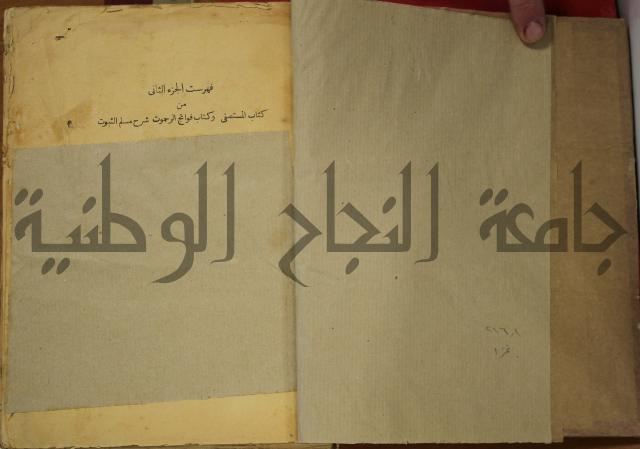 فهرست الجزء الثانى
من
كتاب المستصفى وكتاب فواتح الرحموت شرح مسلم الثبوت
جامعة النجاح الوطنية
٢١٦٫١